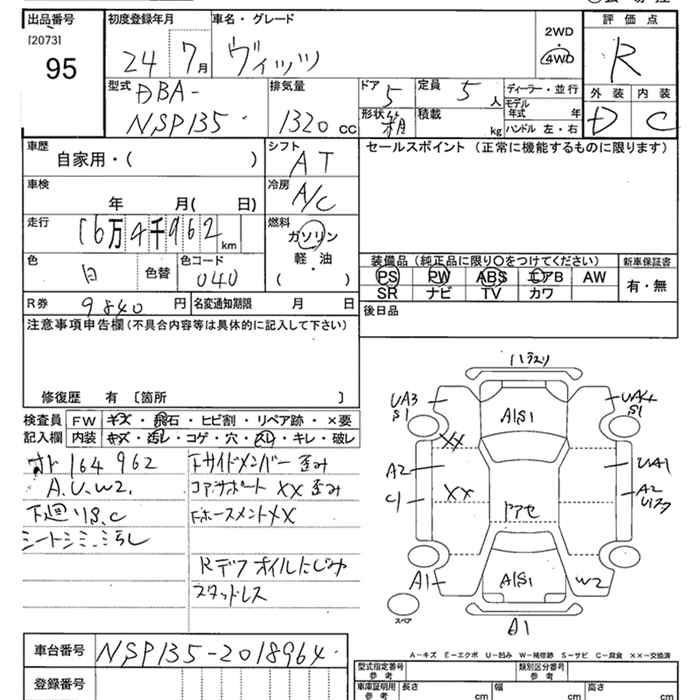 出品番号
[2073]
95
初度登録年月
24 7月
車名・グレード
ヴィッツ
2WD
4WD
評価点
R
外装 内装
D C
型式
DBA-
NSP135
排気量
1320 cc
ドア
5
形状
定員
5 人
積載
kg
ディーラー・並行
モデル年式 年
ハンドル 左・右
車歴
自家用・( )
シフト
AT
セールスポイント (正常に機能するものに限ります)
車検
年 月( 日)
冷房
A/C
走行
16万4千962 km
燃料
ガソリン
軽・油
( )
色
白
色替
色コード
040
装備品 (純正品に限り〇をつけてください)
新車保証書
PS PW ABS エアB AW
SR ナビ TV カワ
有・無
R券 9840 円
名変通知期限 月 日
後日品
注意事項申告欄 (不具合内容等は具体的に記入して下さい)
修復歴 有 〔箇所 〕
検査員記入欄
FW キズ・飛石・ヒビ割・リペア跡・×要
内装 キズ・汚レ・コゲ・穴・スレ・キレ・破レ
オド 164962
A.U.W2.
下廻りS.C
シートシミ、汚レ
Fサイドメンバー歪み
コアサポート XX 歪み
Fホースメント XX
Rデフオイルにじみ
スタッドレス
UA3
S1
A1S1
UA4
S1
XX
A2
XX
UA1
A2
ドアセ
A1
A1S1
W2
A1
スペア
A-キズ E-エクボ U-凹み W-補修跡 S-サビ C-腐食 XX-交換済
車台番号
NSP135-2018964
登録番号
型式指定番号
参考
類別区分番号
参考
車庫証明用
参考
長さ cm
幅 cm
高さ cm